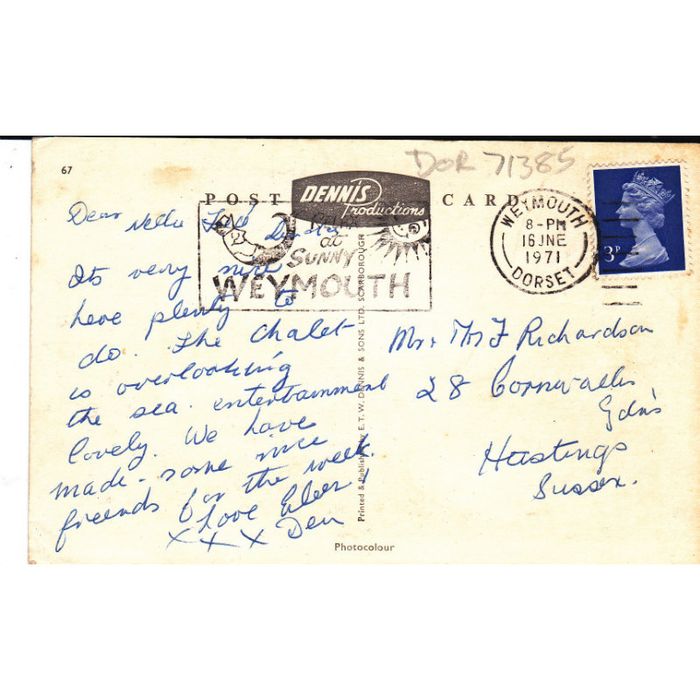 67
DOR 71385
POST CARD
DENNIS
Productions
at
SUNNY
WEYMOUTH
WEYMOUTH
8-PM
16 JNE
1971
DORSET
3P
Dear Nellie
Its very nice
have plenty to
do. The Chalet
is overlooking
the sea. entertainment
lovely. We have
made some nice
friends for the week.
Love
x x x Den
Mr & Mrs F Richardson
28 Cornwallis
Gdns
Hastings
Sussex.
Printed & Published by E.T.W. DENNIS & SONS LTD. SCARBOROUGH
Photocolour